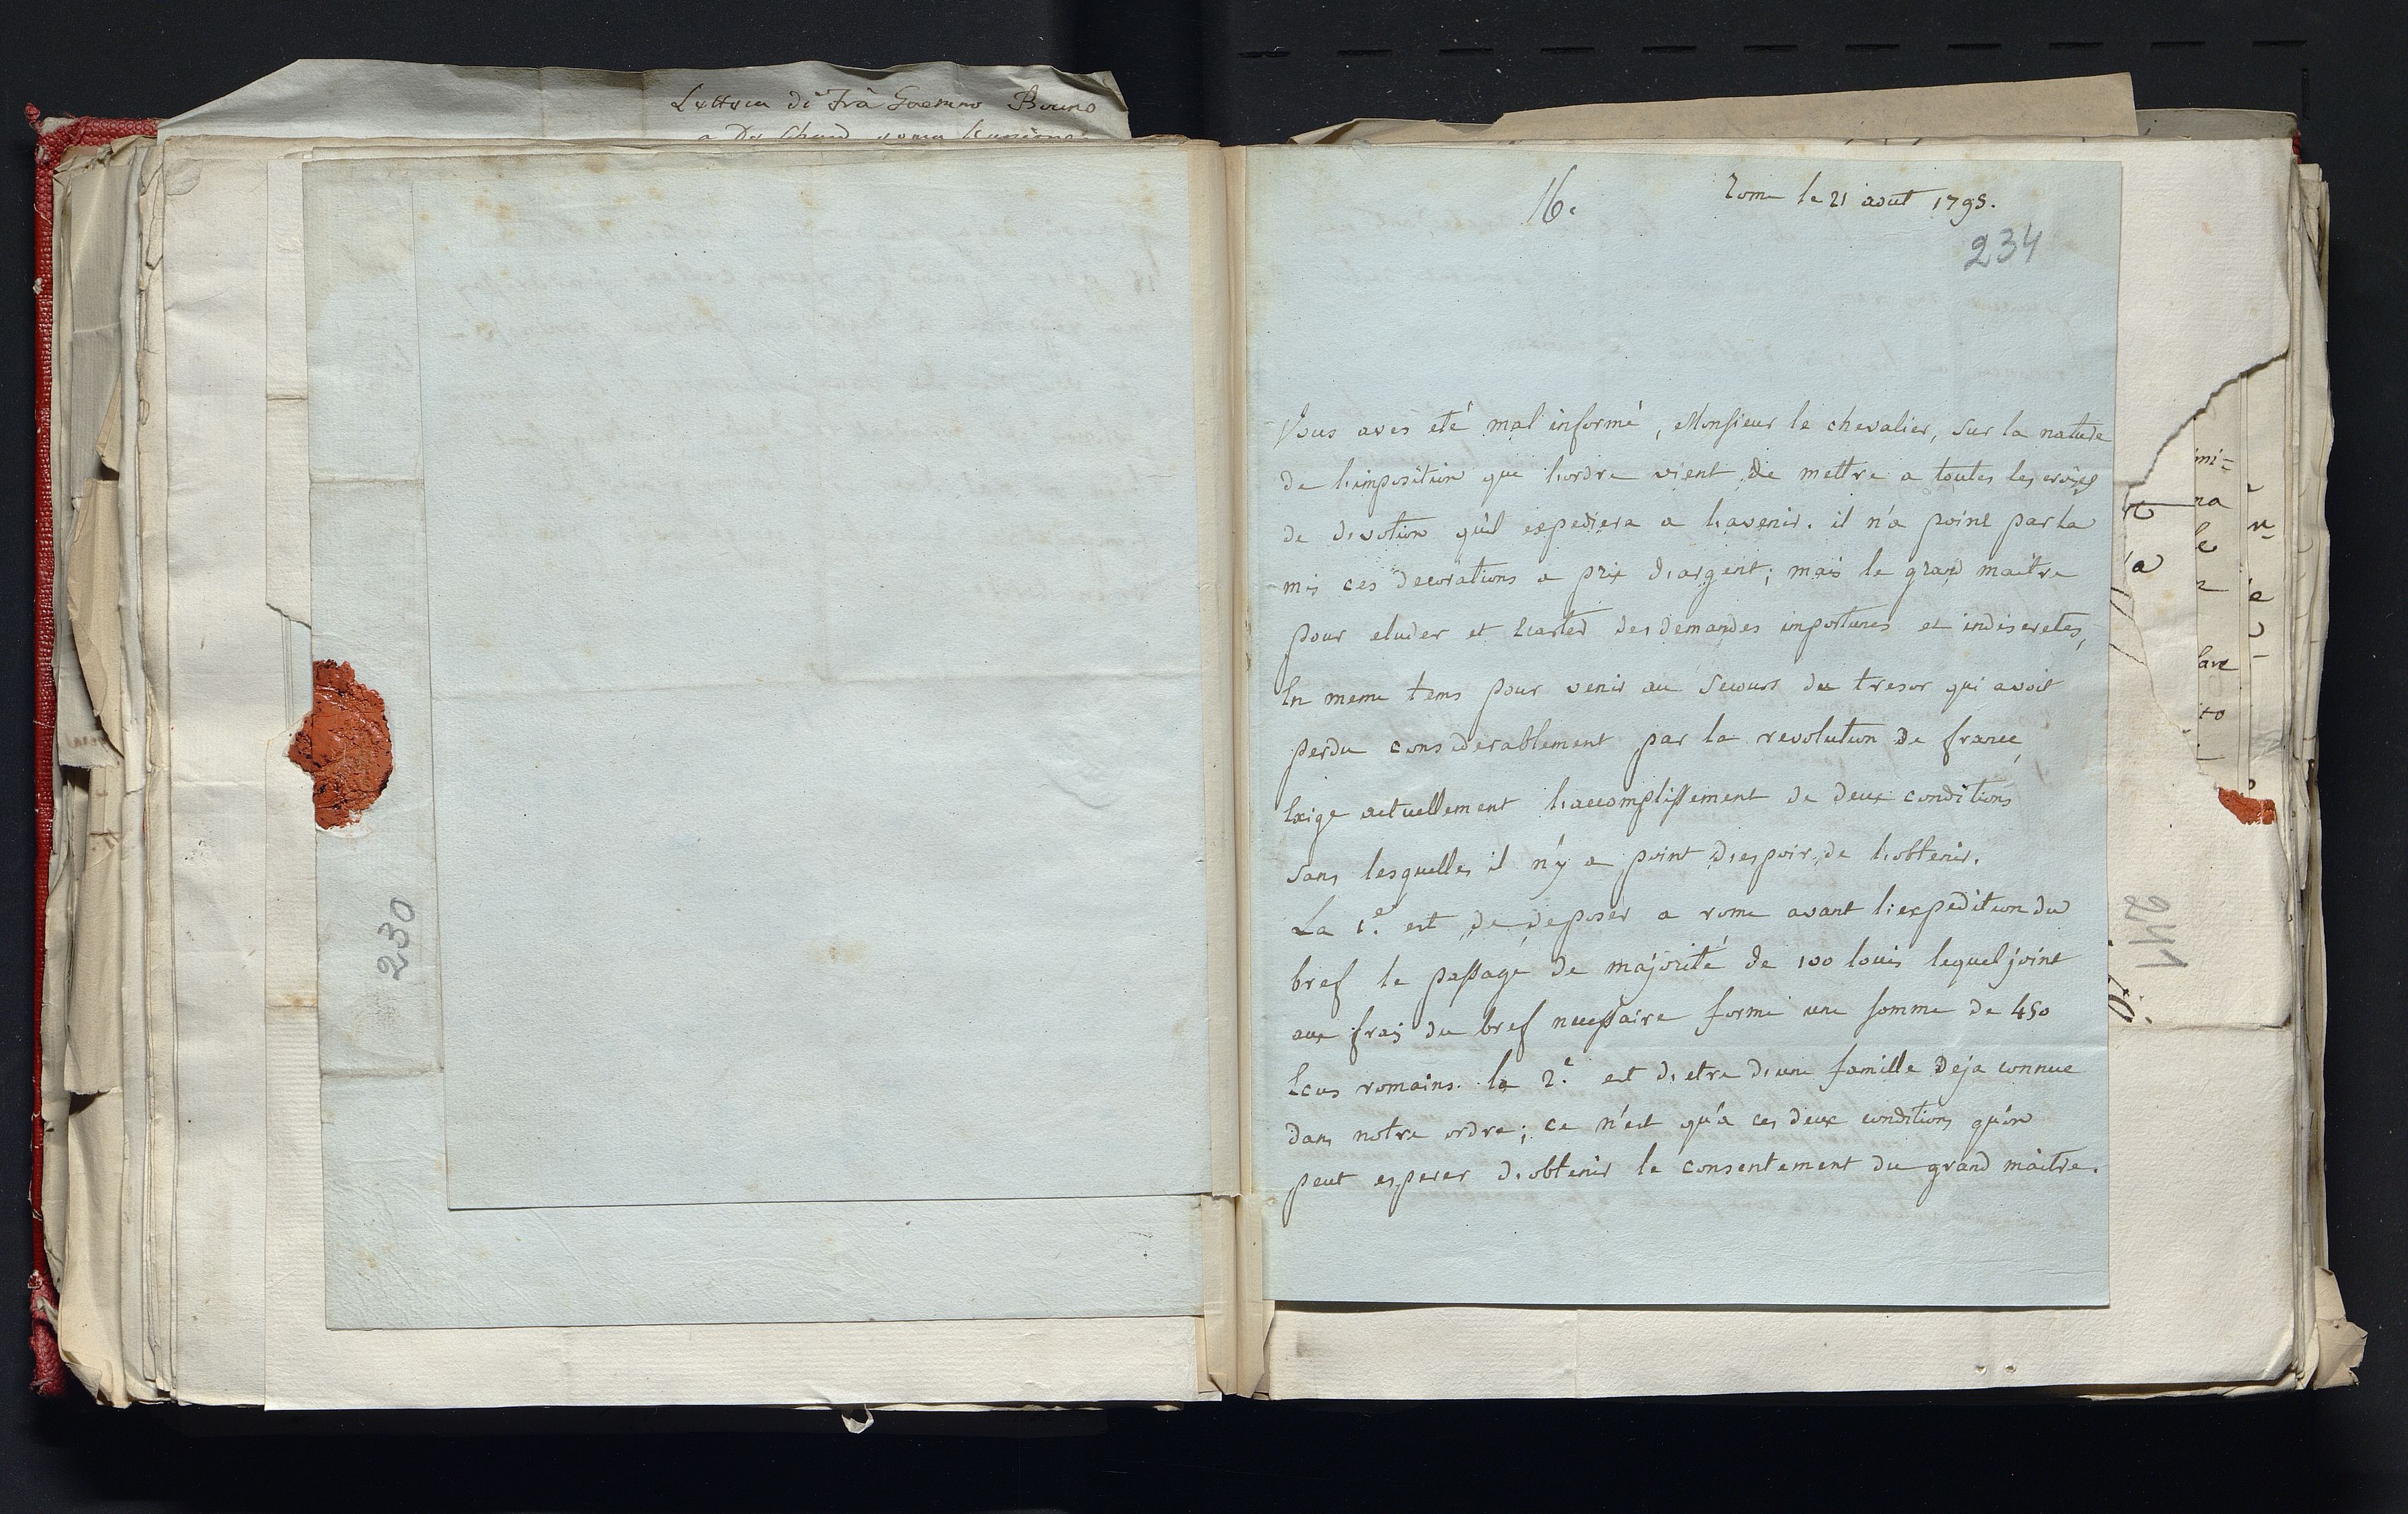 Lettera di Frà
230
16.
Rome le 21 aout 1795.
234
Vous avès eté mal informé, Monsieur le chevalier, sur la nature
de l'imposition que l'ordre vient de mettre a toutes les croix
de devotion qu'il expediera a l'avenir. il n'a point par la
mis ces decorations a prix d'argent; mais le grand maitre
pour eluder et ecarter des demandes importunes et indiscretes,
En meme tems pour venir au secours du tresor qui avoit
perdu considerablement par la revolution de france,
Exige actuellement l'accomplissement de deux conditions
sans lesquelles il n'y a point d'espoir de l'obtenir.
La 1.e est de deposer a rome avant l'expedition du
bref le passage de majorité de 100 louis lequel joint
aux frais du bref necessaire forme une somme de 450
Ecus romains. la 2.e est d'etre d'une famille deja connue
dans notre ordre; ce n'est qu'a ces deux conditions qu'on
peut esperer d'obtenir le consentement du grand maitre.
241